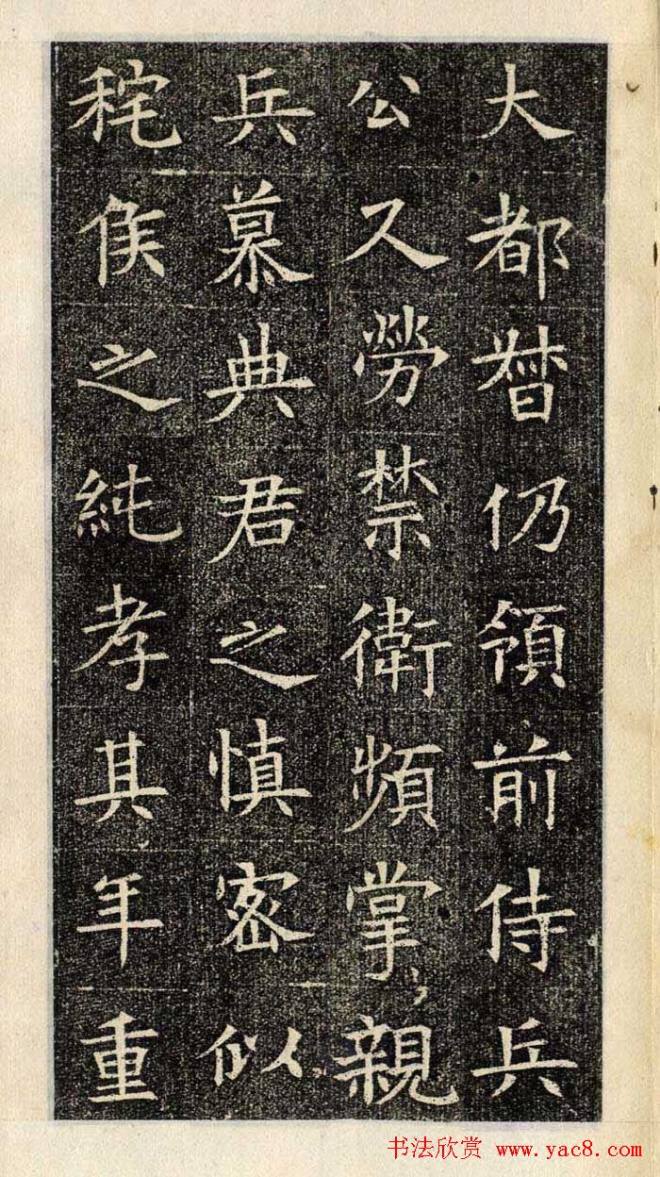 大都督仍領前侍兵
公久勞禁衛頻掌親
兵慕典君之慎密似
秺侯之純孝其年重
书法欣赏 www.yac8.com